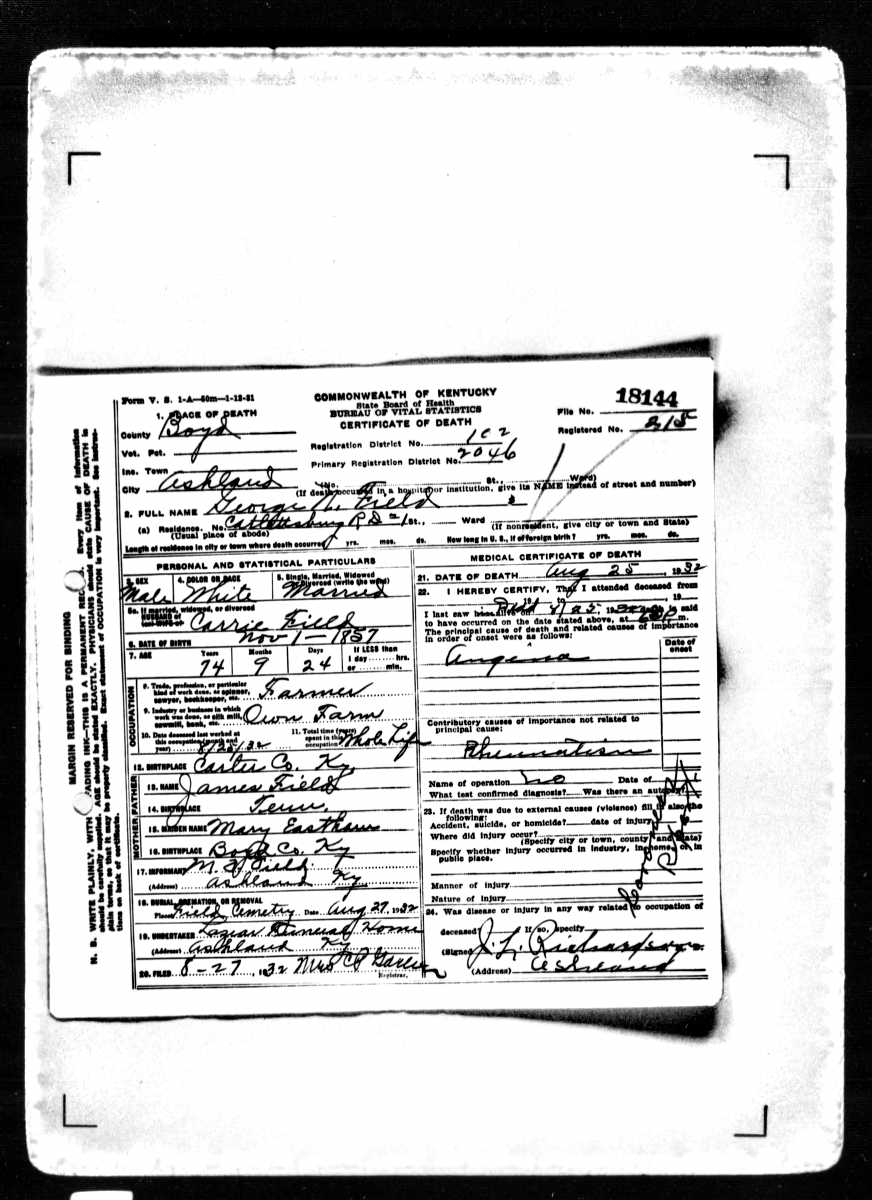 Form V. S. 1-A—50m—1-13-31
COMMONWEALTH OF KENTUCKY
State Board of Health
BUREAU OF VITAL STATISTICS
CERTIFICATE OF DEATH
18144
File No.
Registered No. 215
1. PLACE OF DEATH
County Boyd
Vot. Pct.
Inc. Town
City Ashland
Registration District No. 102
Primary Registration District No. 2046
No. St., Ward)
(If death occurred in a hospital or institution, give its NAME instead of street and number)
2. FULL NAME George Field
(a) Residence. No. Catlettsburg R D 1 St., Ward
(Usual place of abode)
(If nonresident, give city or town and State)
Length of residence in city or town where death occurred yrs. mos. ds. How long in U. S., if of foreign birth? yrs. mos. ds.
PERSONAL AND STATISTICAL PARTICULARS
3. SEX Male
4. COLOR OR RACE White
5. Single, Married, Widowed or Divorced (write the word) Married
5a. If married, widowed, or divorced
HUSBAND of
(or) WIFE of Carrie Field
6. DATE OF BIRTH Nov 1—1857
7. AGE Years 74 Months 9 Days 24 If LESS than 1 day hrs. or min.
OCCUPATION
8. Trade, profession, or particular kind of work done, as spinner, sawyer, bookkeeper, etc. Farmer
9. Industry or business in which work was done, as silk mill, sawmill, bank, etc. Own Farm
10. Date deceased last worked at this occupation (month and year) 8/25/32
11. Total time (years) spent in this occupation Whole Life
12. BIRTHPLACE Carter Co. Ky.
FATHER
13. NAME James Field
14. BIRTHPLACE Tenn.
MOTHER
15. MAIDEN NAME Mary Eastham
16. BIRTHPLACE Boyd Co. Ky
17. INFORMANT Field
(Address) Ashland Ky.
18. BURIAL, CREMATION, OR REMOVAL
Place Field Cemetry Date Aug 27, 1932
19. UNDERTAKER Lazear Funeral Home
(Address) Ashland Ky
20. FILED 8-27, 1932 Mrs
Registrar.
MEDICAL CERTIFICATE OF DEATH
21. DATE OF DEATH Aug 25 1932
22. I HEREBY CERTIFY, That I attended deceased from
19 to 19
I last saw h alive on 8/25, 19 is said
to have occurred on the date stated above, at m.
The principal cause of death and related causes of importance
in order of onset were as follows:
Date of onset
Angina
Contributory causes of importance not related to
principal cause:
Rheumatism
Name of operation no Date of
What test confirmed diagnosis? Was there an autopsy?
23. If death was due to external causes (violence) fill in also the
following:
Accident, suicide, or homicide? date of injury
Where did injury occur?
(Specify city or town, county and State)
Specify whether injury occurred in industry, in home, or in
public place.
Manner of injury
Nature of injury
24. Was disease or injury in any way related to occupation of
deceased? If so, specify
(Signed) J. L. Richardson
(Address) Ashland
Coroner's Report
MARGIN RESERVED FOR BINDING
N. B. WRITE PLAINLY, WITH FADING INK—THIS IS A PERMANENT RECORD. Every item of information
should be carefully supplied. AGE should be stated EXACTLY. PHYSICIANS should state CAUSE OF DEATH in
plain terms, so that it may be properly classified. Exact statement of OCCUPATION is very important. See instruc-
tions on back of certificate.